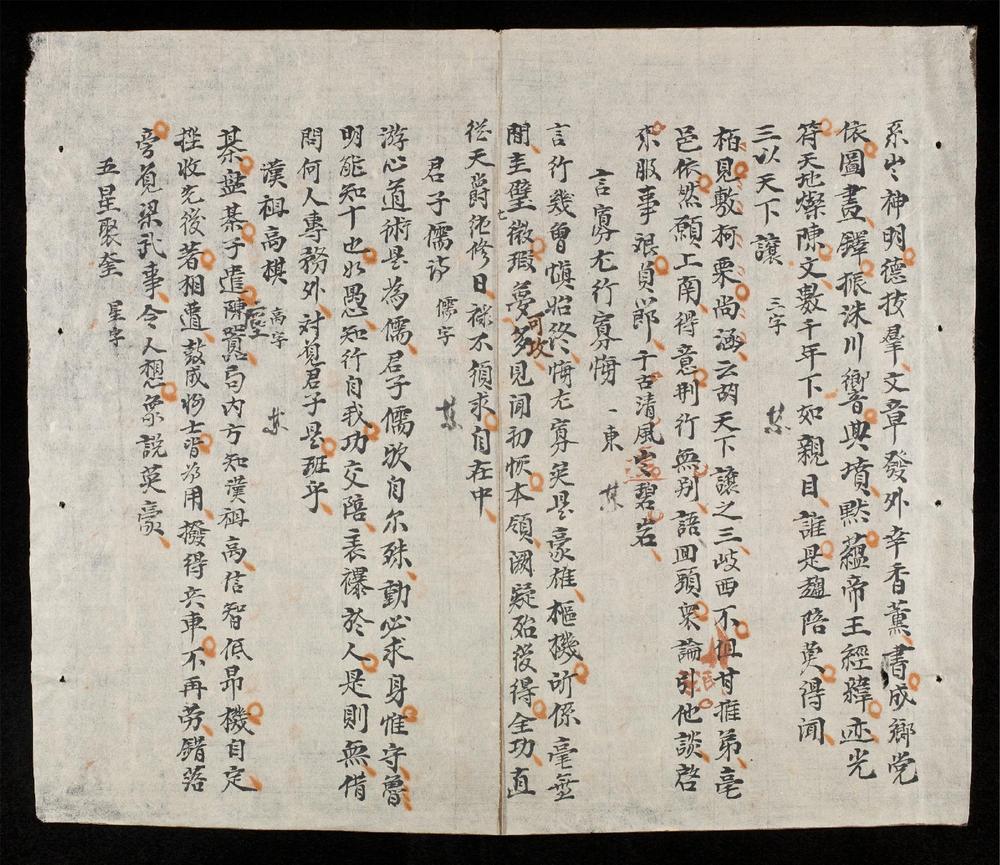 神明德技羣文章發外幸香薰書成鄉党
依圖畫鐸振洙川響典墳默蘊帝王經緯迹光
符天地燦陳文數千年下如親目誰是趨陪莫得聞
三以天下讓 三字
栢見敷柯栗尚涵云胡天下讓之三岐西不但甘推弟亳
邑依然願上南得意荆行無别語回頭衆論引他談啓
來服事艰貞節千古清風岩碧岩
言寡尤行寡悔 一東
言行幾曾愼始終悔尤寡矣是豪雄樞機所係毫
間圭璧微瑕夢多見聞初恢本領阙疑殆後得全功直
可攻
從天爵從修日禄不須求自在中
君子儒詩 儒字
游心道術是為儒君子儒欤自尔殊勤必求身惟守魯
明能知十也如愚知行自我功交陪表襮於人是則無借
問何人專務外対覓君子是班乎
漢祖高棋 高字
棊盘棊子遣陳嚣局内方知漢祖高信智低昂機自定
挫收先後著相遭鼓成将士皆為用撥得兵車不再勞錯落
旁覓梁武事令人想象説英豪
五星聚奎 星字